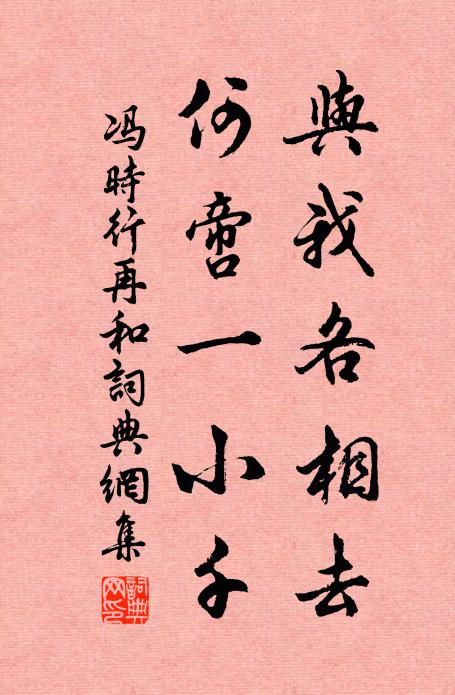 與我各相去
何啻一小千
冯時行再和詞典網集
詞典網印